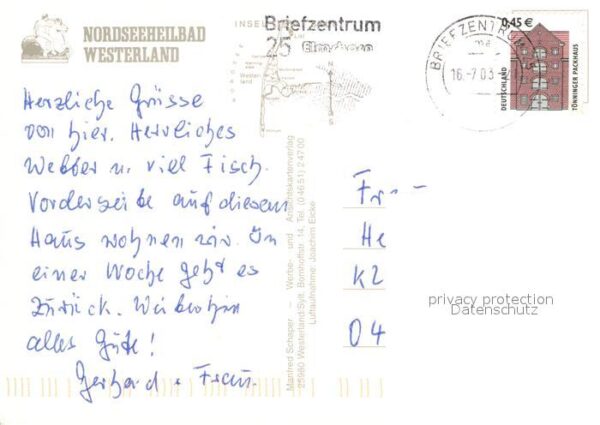 NORDSEEHEILBAD
WESTERLAND
INSEL
Briefzentrum
25
Wester-
land
BRIEFZENTRUM
16.-7.03
0,45 €
DEUTSCHLAND
TÖNNINGER PACKHAUS
Herzliche Grüsse
von hier. Herrliches
Wetter u. viel Fisch.
Vorderseite auf diesem
Haus wohnen wir. In
einer Woche geht es
zurück. Weiterhin
alles Gute!
Gerhard + Frau.
Manfred Schaper – Werbe- und Ansichtskartenverlag
25980 Westerland/Sylt, Bomhoffstr. 14, Tel. (0 46 51) 2 47 00
Luftaufnahme: Joachim Eicke
Fr
He
K2
04
privacy protection
Datenschutz